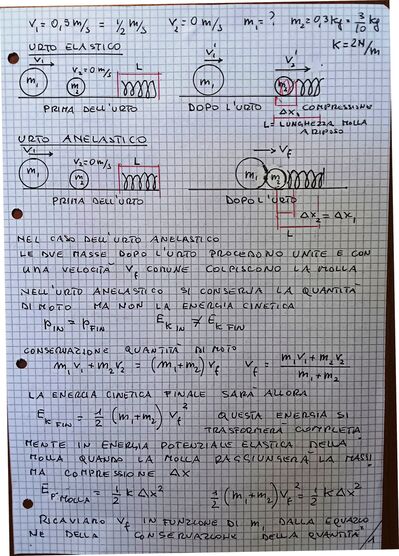 V₁ = 0,5 m/s = 1/2 m/s V₂ = 0 m/s m₁ = ? m₂ = 0,3 kg = 3/10 kg
K = 2 N/m
URTO ELASTICO
V₁ V₂ = 0 m/s L V₁' V₂'
m₁ m₂ m₁ m₂
PRIMA DELL'URTO DOPO L'URTO Δx₁ COMPRESSIONE
L = LUNGHEZZA MOLLA A RIPOSO
URTO ANELASTICO
V₁ V₂ = 0 m/s L V_f
m₁ m₂ m₁ m₂
PRIMA DELL'URTO DOPO L'URTO Δx₂ = Δx₁
L
NEL CASO DELL'URTO ANELASTICO
LE DUE MASSE DOPO L'URTO PROCEDONO UNITE E CON
UNA VELOCITÀ V_f COMUNE COLPISCONO LA MOLLA
NELL'URTO ANELASTICO SI CONSERVA LA QUANTITÀ
DI MOTO MA NON LA ENERGIA CINETICA
p_IN = p_FIN E_K IN ≠ E_K FIN
CONSERVAZIONE QUANTITÀ DI MOTO
m₁V₁ + m₂V₂ = (m₁+m₂) V_f V_f = (m₁V₁ + m₂V₂)/(m₁+m₂)
LA ENERGIA CINETICA FINALE SARÀ ALLORA
E_K FIN = 1/2 (m₁+m₂) V_f² QUESTA ENERGIA SI
TRASFORMERÀ COMPLETA
MENTE IN ENERGIA POTENZIALE ELASTICA DELLA
MOLLA QUANDO LA MOLLA RAGGIUNGERÀ LA MASSI
MA COMPRESSIONE ΔX
E_P MOLLA = 1/2 K ΔX² 1/2 (m₁+m₂) V_f² = 1/2 K ΔX²
RICAVIAMO V_f IN FUNZIONE DI m₁ DALLA EQUAZIO
NE DELLA CONSERVAZIONE DELLA QUANTITÀ
1